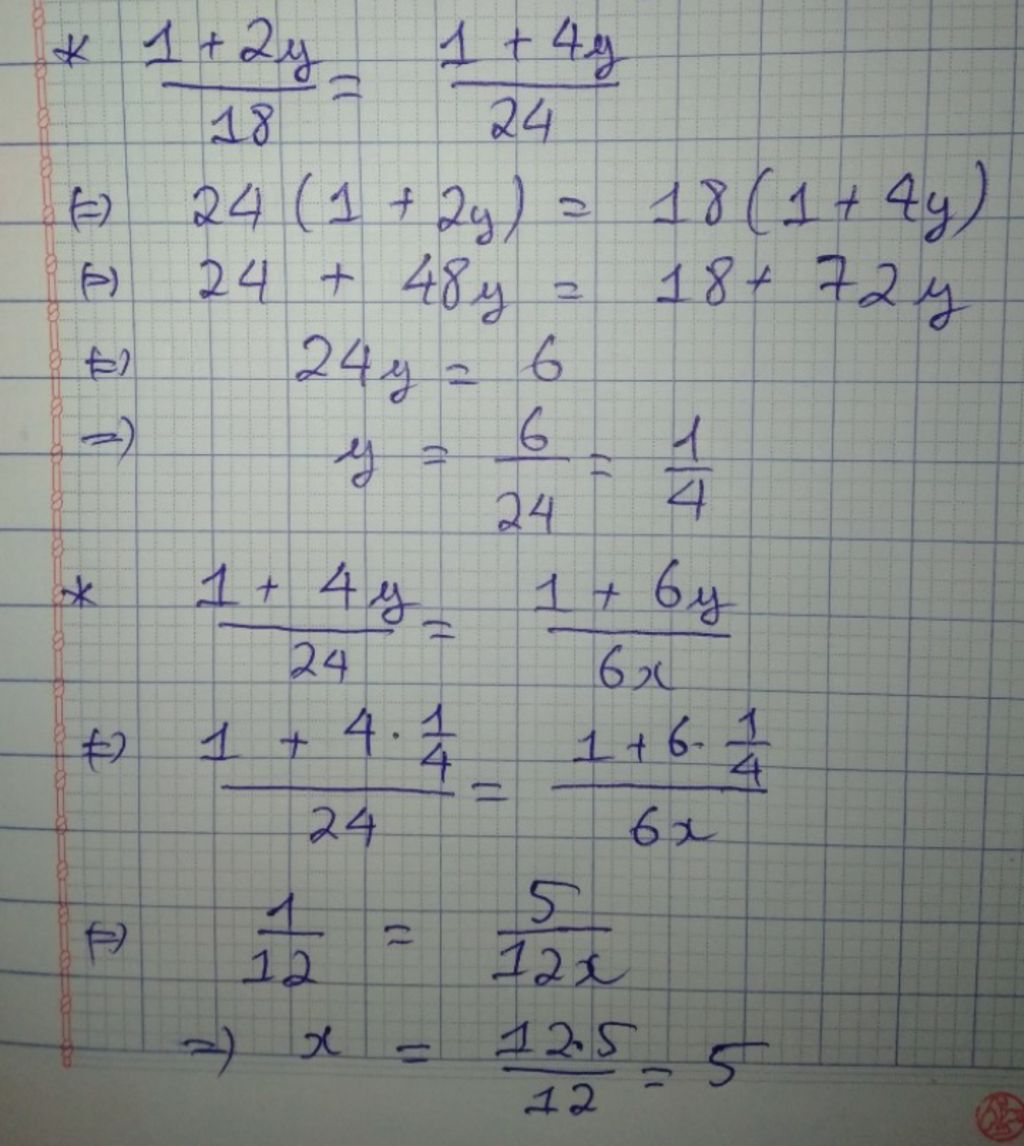 * (1 + 2y)/18 = (1 + 4y)/24
⇔ 24 (1 + 2y) = 18 (1 + 4y)
⇔ 24 + 48y = 18 + 72y
⇔ 24y = 6
⇒ y = 6/24 = 1/4
* (1 + 4y)/24 = (1 + 6y)/6x
⇔ (1 + 4 . 1/4)/24 = (1 + 6 . 1/4)/6x
⇔ 1/12 = 5/12x
⇒ x = 12.5/12 = 5